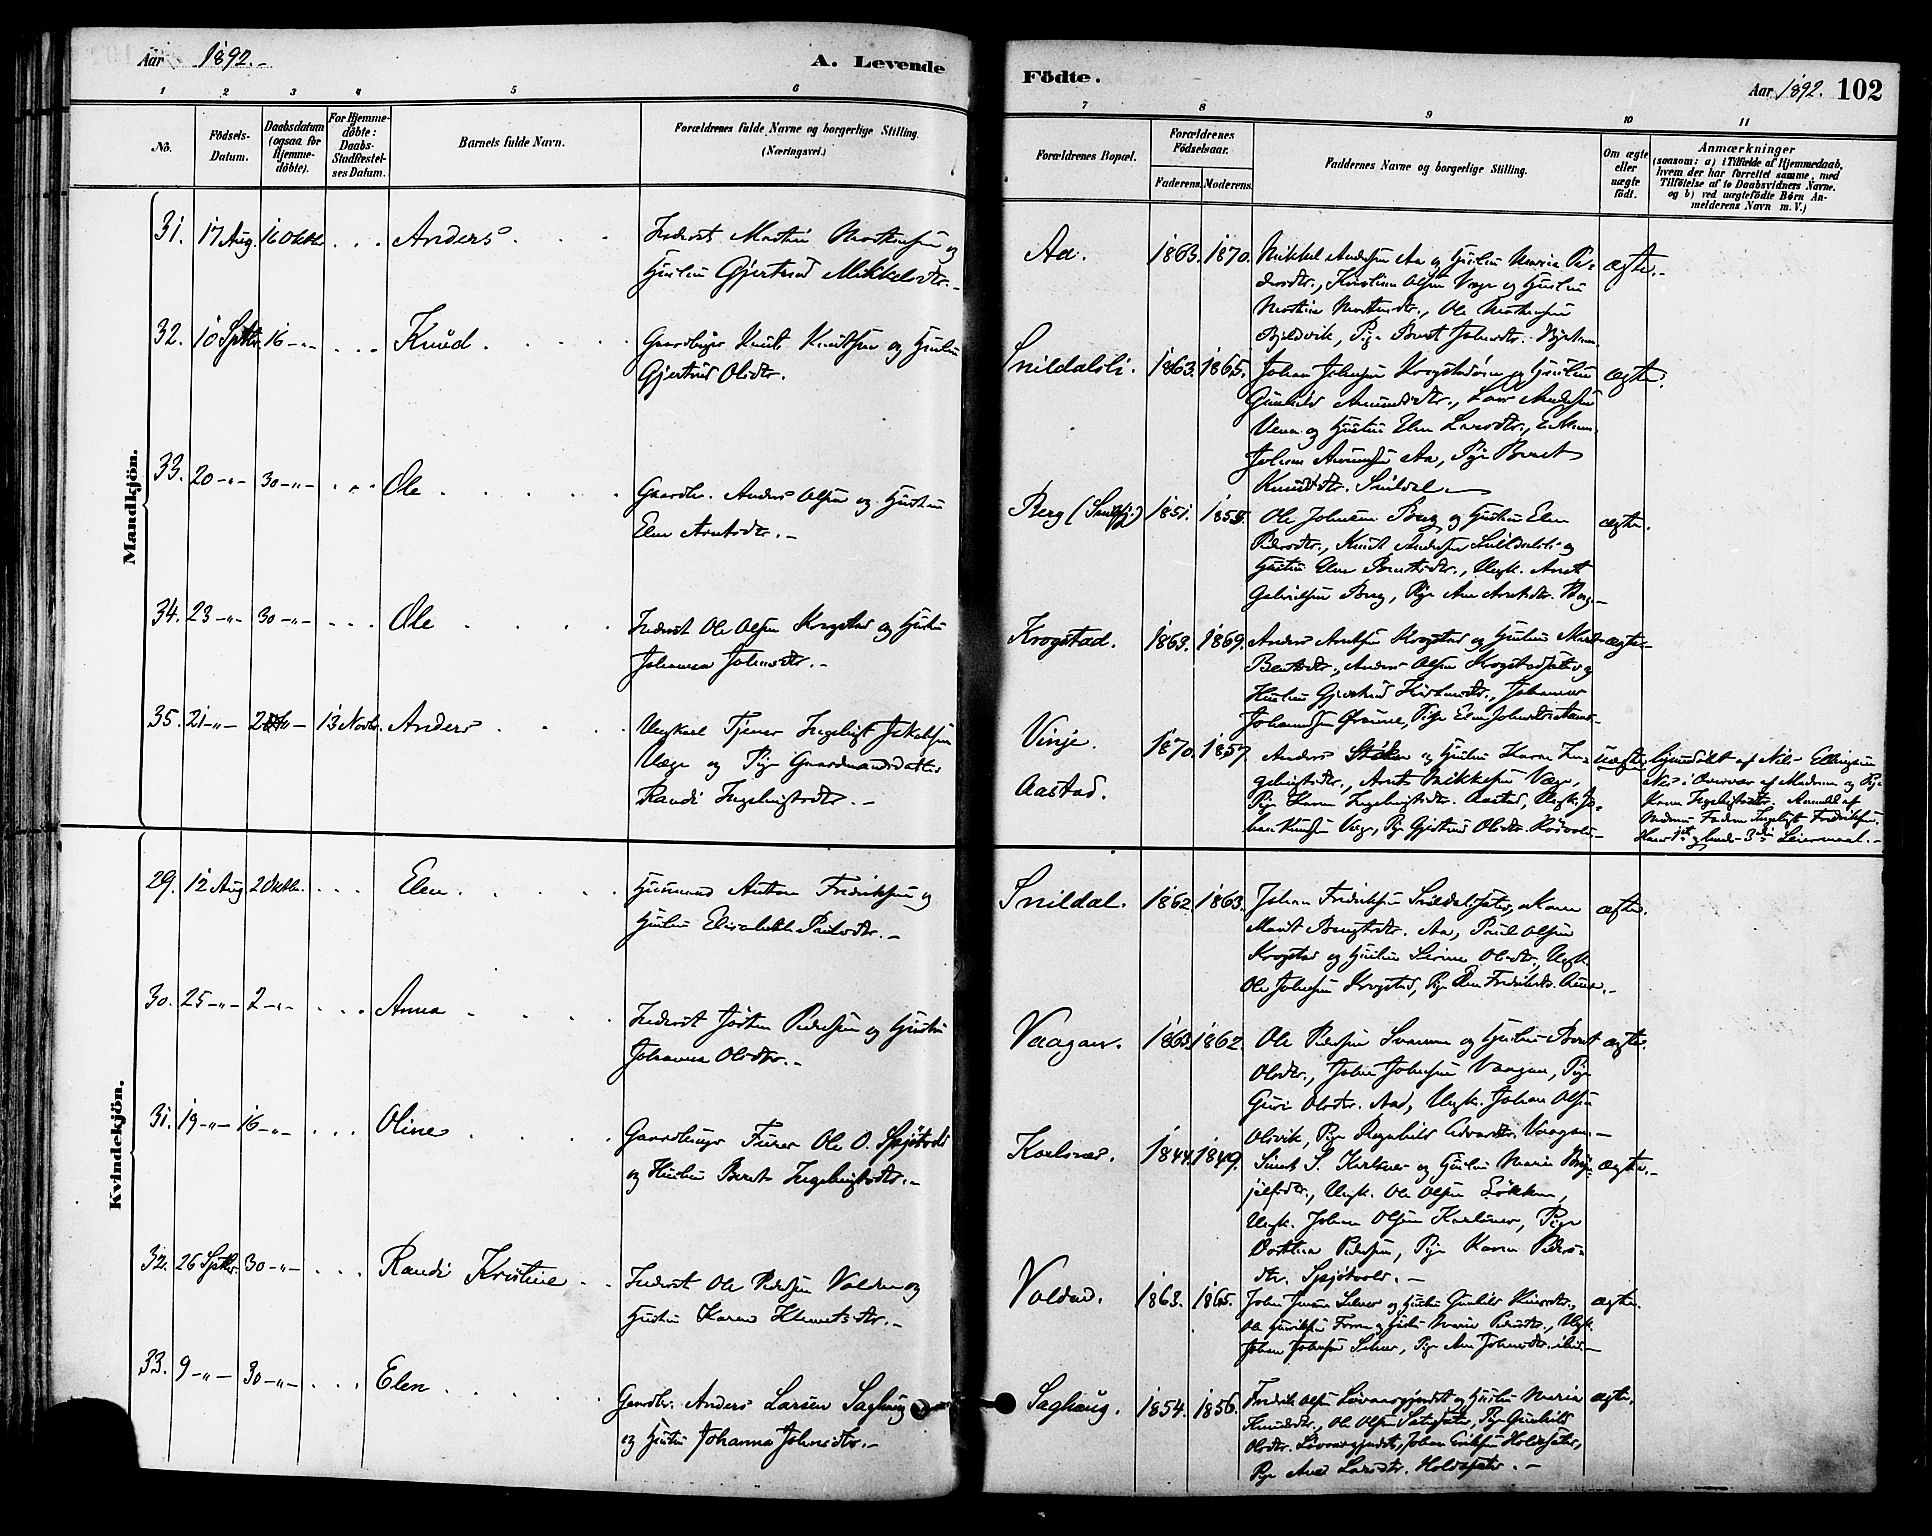 Aar 1892.-
A. Levende
1 2 3 4 5 6
No.
Födsels-
Datum.
Daabsdatum
(ogsaa for
Hjemme-
döbte).
For Hjemme-
döbte:
Daabs-
Stadfæstel-
ses Datum.
Barnets fulde Navn.
Forældrenes fulde Navne og borgerlige Stilling.
(Næringsvei.)
Mandkjön.
31. 17 Aug. 16 Oktbr. . . . Anders . . . Inderst Martin Mortensen og
Hustru Gjertrud Mikkelsdtr. -
32. 10 Sptbr. 16 -"- . . . Knud . . . . Gaardbruger Knut Knutsen og Hustru
Gjertrud Olsdtr.
33. 20 -"- 30 -"- . . . Ole . . . . Gaardbr. Anders Olsen og Hustru
Elen Arntsdtr. -
34. 23 -"- 30 -"- . . . Ole . . . . Inderst Ole Olsen Krogstad og Hustru
Johanna Johnsdtr. -
35. 21 -"- -"- 13 Novbr. Anders . . . Ungkarl Tjener Ingebrigt Jakobsen
Væge og Pige Gaardmandsdatter
Randi Ingebrigtsdtr. -
Kvindekjön.
29. 12 Aug. 2 Oktbr. . . . Elen . . . . Husmand Anton Fredriksen og
Hustru Elisabeth Paulsdtr. -
30. 25 -"- 2 -"- . . . Anna . . . . Inderst Jörgen Pedersen og Hustru
Johanna Olsdtr. -
31. 19 -"- 16 -"- . . . Oline . . . . Gaardbruger Furer Ole O. Spjötvold
og Hustru Beret Ingebrigtsdtr. -
32. 26 Sptbr. 30 -"- . . . Randi Kristine . . Inderst Ole Pedersen Volden og
Hustru Karen Klemetsdtr. -
33. 9 -"- 30 -"- . . . Elen . . . . Gaardbr. Anders Larsen Saghaug
og Hustru Johanna Johnsdtr. -
Födte.
Aar 1892. 102
7 8 9 10 11
Forældrenes Bopæl.
Forældrenes
Födselsaar.
Faderens. Moderens.
Faddernes Navne og borgerlige Stilling.
Om ægte
eller
uægte
födt.
Anmærkninger
(saasom: a) i Tilfælde af Hjemmedaab,
hvem der har forrettet samme, med
Tilföielse af to Daabsvidners Navne.
og b) ved uægtefödte Börn An-
melderens Navn m. V.)
Aa. 1863. 1870. Mikkel Andersen Aa og Hustru Maria Pe-
dersdtr., Kristian Olsen Væge og Hustru
Martine Mortensdtr., Ole Mortensen
Pige Beret Johnsdtr.
ægte. -
Snildalsli. 1863. 1865. Johan Johnsen Krogstadöien og Hustru
Gunhild Amundsdtr., Lars Andersen
Venn og Hustru Elen Larsdtr.,
Johan Amundsen Aa, Pige Beret
Knudsdtr. Snildal
ægte.
Berg 1851. Ole Johnsen Berg og Hustru Elen
Pedersdtr., Knut Andersen Snildalsli og
Hustru Elen Berntsdtr., Ungk. Arnt
Gabrielsen Berg, Pige Ane Arntsdtr. Berg. -
ægte.
Krogstad. 1863. 1869. Anders Arntsen Krogstad og Hustru Marit
Berntsdtr., Anders Olsen Krogstadsæter og
Hustru Gjertrud Johannes
Johannessen Pige Elen Johnsdtr.
ægte -
Vinje.
Aastad.
1870. 1857. Anders og Hustru Karen In-
gebrigtsdtr., Arnt Mikkelsen Væge,
Pige Karen Ingebrigtsdtr. Aastad, Ungk. Jo-
han Knutsen Væge, Pige Gjertrud Olsdtr.
uægte.
Hjemmedöbt af Nils Ellingsen
i Overvær af Moderen og Pige
Karen Ingebrigtsdtr. Anmeldt af
Moderen. Faderen Ingebrigt Fredriksen.
Hans 1ste og hendes 3die Leiermaal. -
Snildal. 1862. 1863. Johan Fredriksen Snildalsæter, Kone
Marit Berntsdtr. Aa, Paul Olsen
Krogstad og Hustru Serine Olsdtr., Ungk.
Ole Johnsen Krogstad, Pige Elen Fredriksdtr. -
ægte.
Vaagan. 1863. 1862. Ole Pedersen og Hustru Beret
Olsdtr., John Johnsen Vaagan, Pige
Guri Olsdtr. Aad, Ungk. Johan Olsen
Olsvik, Pige Ragnhild Edvardsdtr. Vaagan. -
ægte.
Karlsnes. 1844. 1849. Simet S. Karlsnes og Hustru Maria
Ungk. Ole Olsen Lökken,
Ungk. Johan Olsen Karlsnes, Pige
Dorthea Pedersen, Pige Karen Peders-
dtr. Spjötvold. -
ægte. -
Volden. 1863. 1865. John Selnes og Hustru Gunhild
Ole Henriksen og Hustru Maria Pedersdtr., Ungk.
Johan Johnsen Selnes, Pige Ane Johnsdtr. ibid. -
ægte.
Saghaug. 1854. 1856. Fredrik Olsen Lövaasgjerdet og Hustru Maria
Knudsdtr., Ole Olsen Sætersæter, Pige Gunhild
Olsdtr. Lövaasgjerdet, Johan Eriksen Holdsæter,
Pige Ane Larsdtr. Holdsæter. -
ægte.